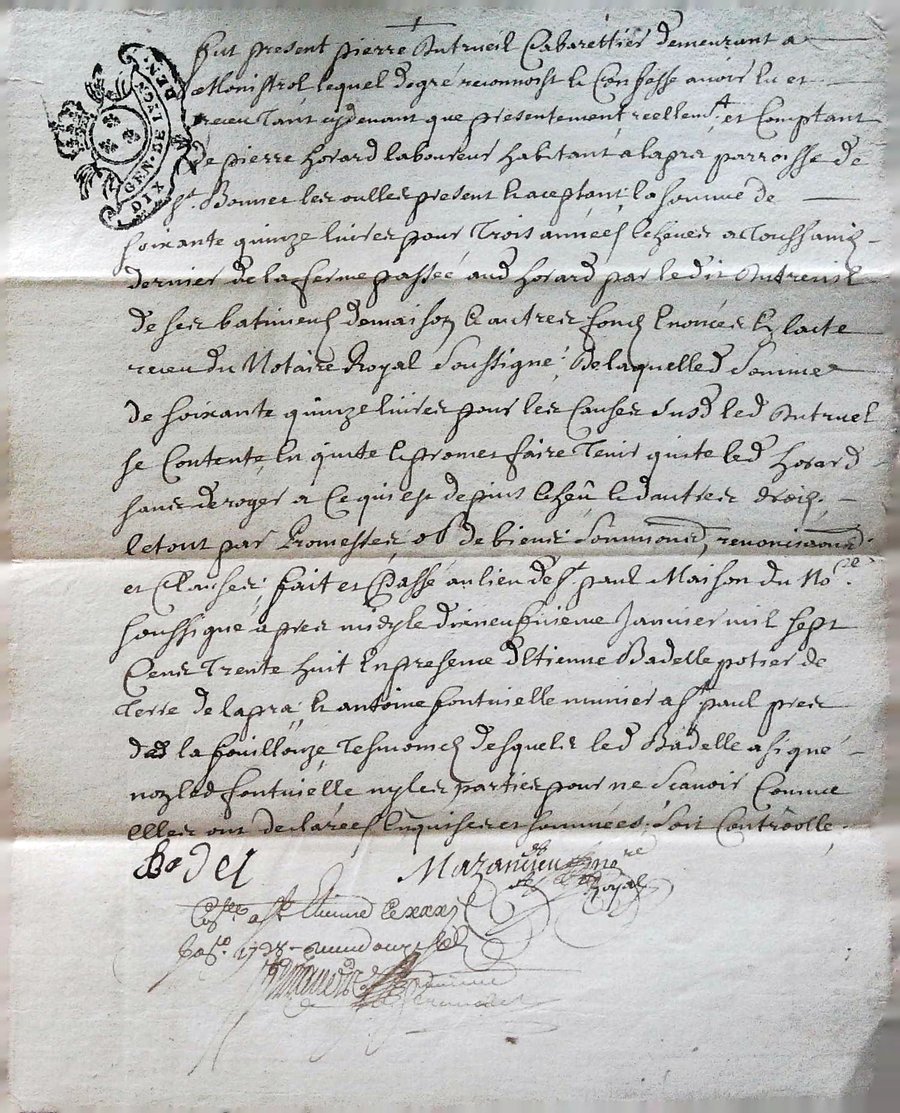 GEN · DE DIX DEN
fut present pierre Autrueil Cabarettier demeurant a
Monistrol lequel degré reconnoist & Confesse avoir hu et
receu Tant cydevant que presentement reellemt. et Comptant
de pierre horard laboureur habitant a lapra parroisse de
st. Bonnet les oulles present & aceptant la somme de
soixante quinze livres pour Trois années echeues a Toussainctz
dernier de la ferme passée aud horard par ledit Autreuil
de ses batimentz demaison & autres fondz Enoncés En lacte
receu du Notaire Royal Soussigné, De laquelled Somme
de soixante quinze livres pour les Causes Susd led Autruel
se Contente, En quitte & promet faire Tenir quitte led horard
sans deroger a Ce qui est depuis echeû & dautres droitz,
letout par Promesses, ob de biens Soumiond, renonciaond
et Clauses, fait et Passé au lieu de st paul Maison du Nore.
soussigné apres midy le dixneufvieme Janvier mil sept
Cens Trente huit En presence d'Etienne Badelle potier de
Terre de lapra, & antoine fontvielle munier a st paul pres
de la fouillouze, Tesmoins desquels led Badelle a signé
non led fontvielle ny les parties pour ne Scavoir Comme
Elles ont declarées Enquises et sommées, Soit Contrôollé,
Badel
nore Royal
a st Etienne Le xxxj
1738